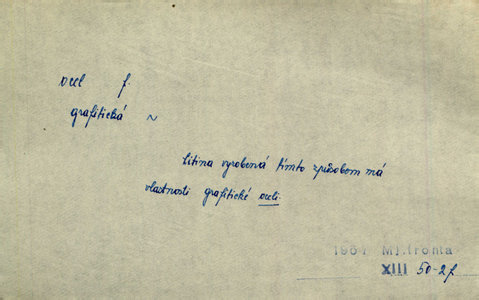 ocel f.
grafitická ~
litina vyrobená tímto způsobem má
vlastnosti grafitické oceli.
Ml. fronta
XIII 50-2f